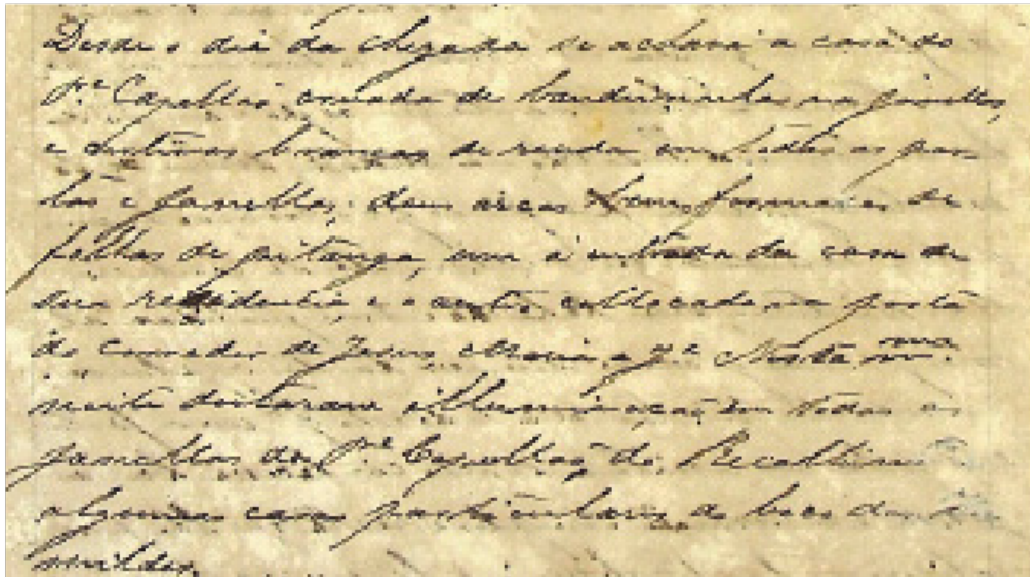 Desde o dia da chegada se achava a casa do
P.e Capellão, ornada de bandeirinhas na janellas,
e cortinas brancas de renda em todas as por
tas e janellas; dous arcos bem formados de
folhas de pitanga, um á entrada da casa de
sua residencia, e o outro collocado na porta
do corredor de Jesus, Maria e J.e Nesta m.ma
noite deitaram illuminação em todas as
janellas do P.e Capellão do Recolhimto
algumas casas particulares do beco das Hu
mildes.